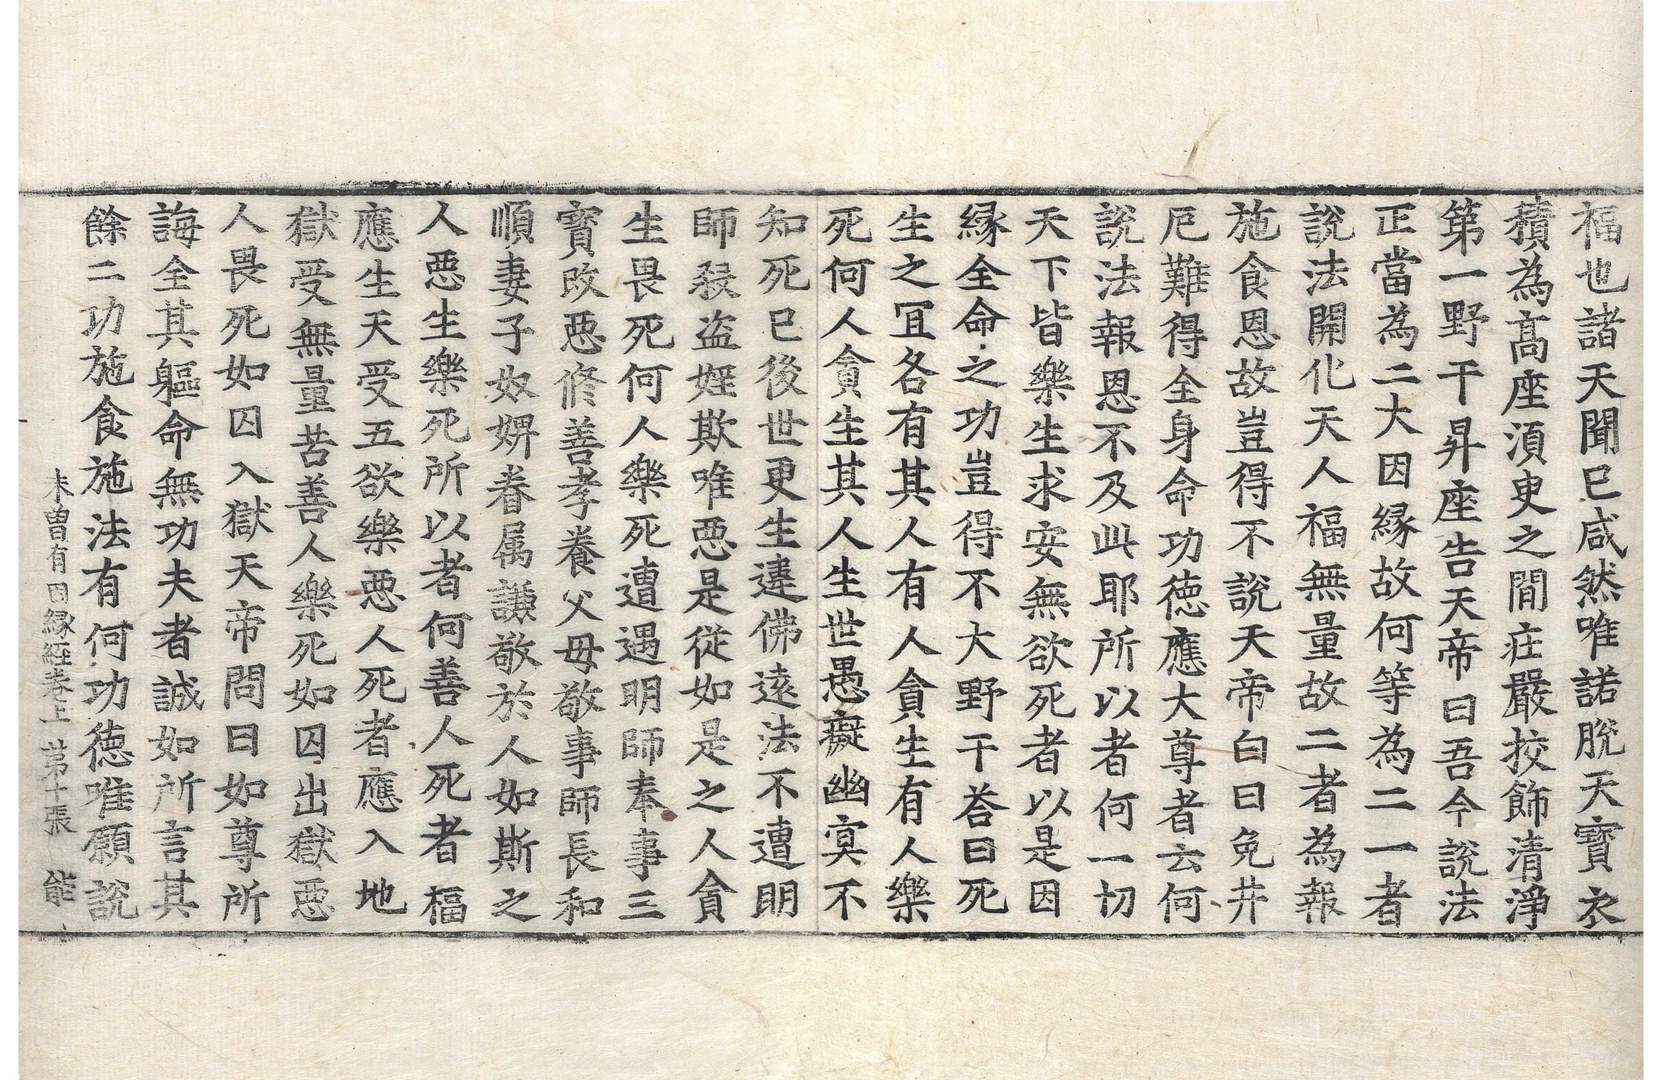 福也諸天聞已咸然唯諾脫天寶衣
積為髙座湏臾之閒庄嚴挍飾清淨
第一野干昇座告天帝曰吾今說法
正當為二大因縁故何等為二一者
說法開化天人福無量故二者為報
施食恩故豈得不說天帝白曰免井
厄難得全身命功徳應大尊者云何
說法報恩不及此耶所以者何一切
天下皆樂生求安無欲死者以是因
縁全命之功豈得不大野干荅曰死
生之冝各有其人有人貪生有人樂
死何人貪生其人生世愚癡幽冥不
知死已後世更生違佛逺法不遭明
師殺盗婬欺唯惡是従如是之人貪
生畏死何人樂死遭遇明師奉事三
寶改惡修善孝養父母敬事師長和
順妻子奴婢眷属謙敬於人如斯之
人惡生樂死所以者何善人死者福
應生天受五欲樂惡人死者應入地
獄受無量苦善人樂死如囚出獄惡
人畏死如囚入獄天帝問曰如尊所
誨全其軀命無功夫者誠如所言其
餘二功施食施法有何功徳唯願說
未曽有因縁經卷上 第十張 能